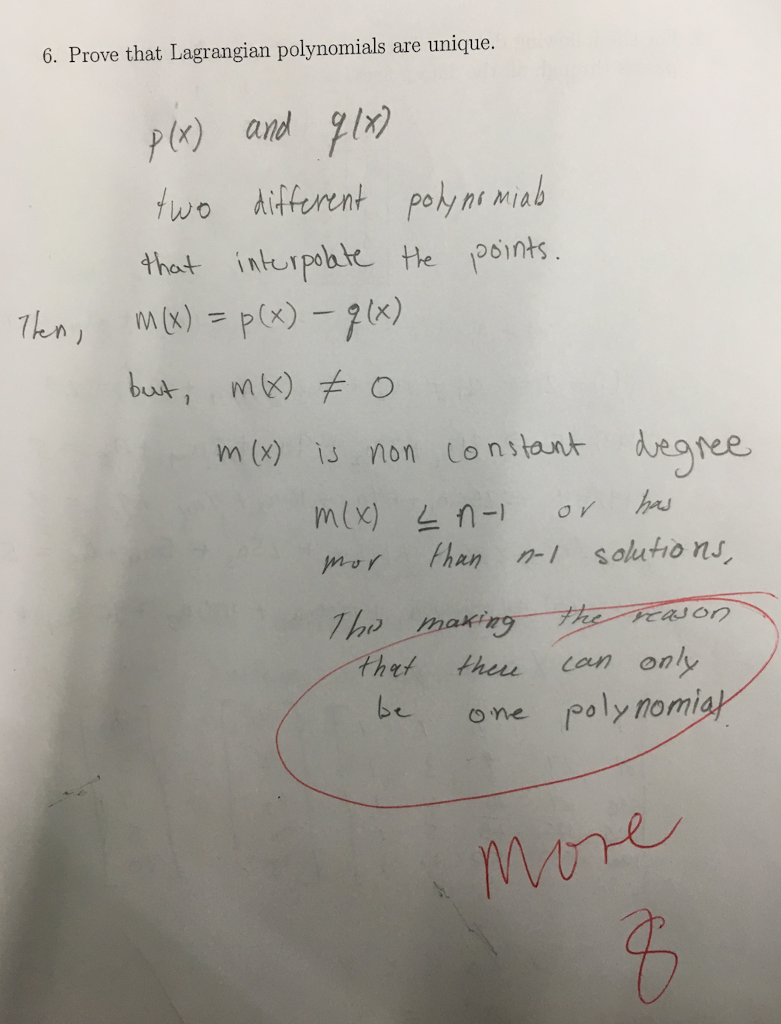 6. Prove that Lagrangian polynomials are unique.
p(x) and q(x)
two different polynomials
that interpolate the points.
Then, m(x) = p(x) - q(x)
but, m(x) ≠ 0
m(x) is non constant degree
m(x) ≤ n-1 or has
mor than n-1 solutions,
This making the reason
that there can only
be one polynomial
more
8